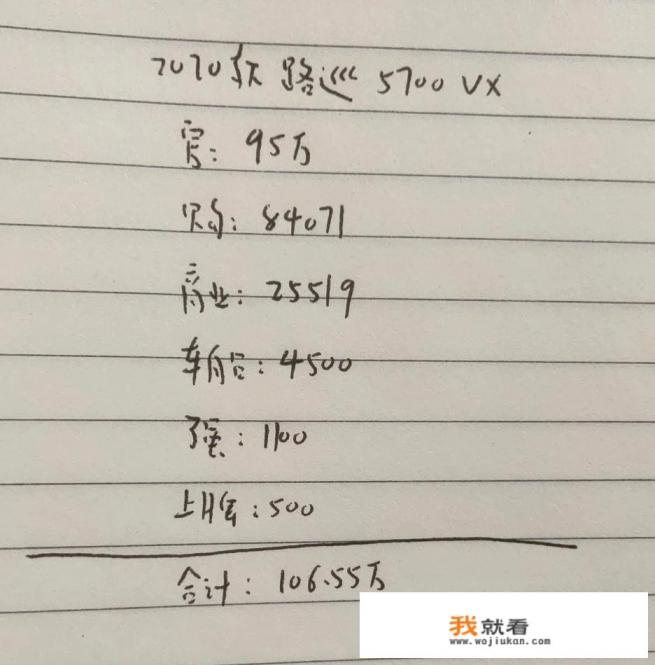 2020款 路巡 5700 VX
官: 95万
购: 84071
商业: 25519
车船: 4500
强: 1100
上牌: 500
合计: 106.55万
我就看
www.wojiukan.com